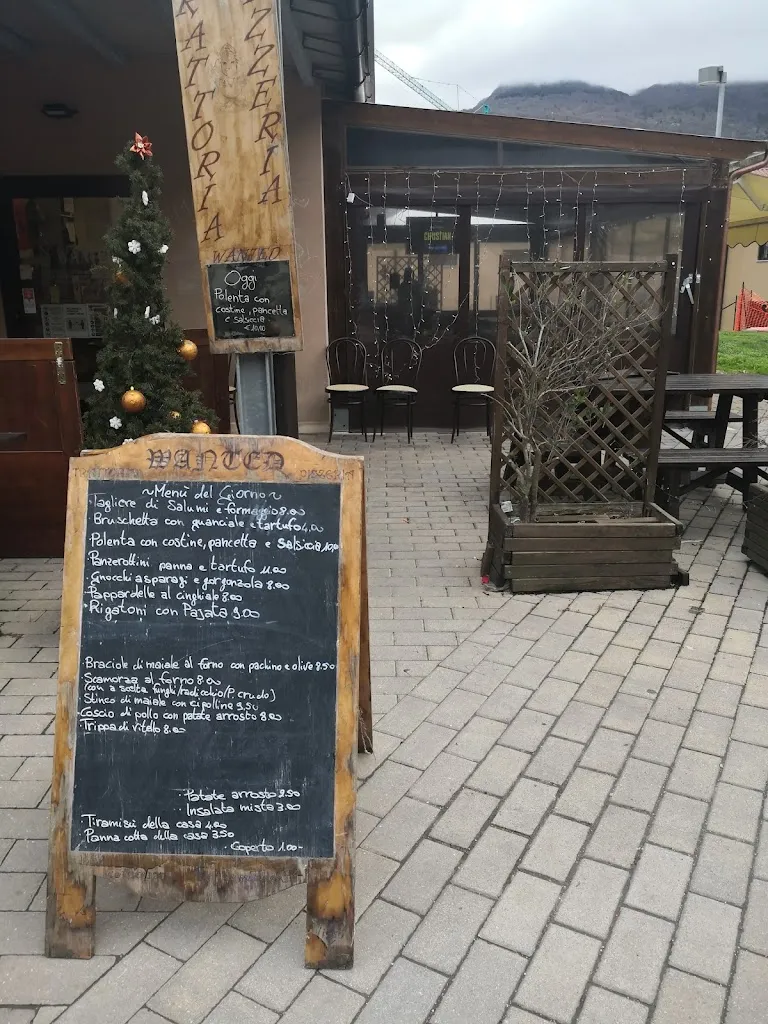 TRATTORIA
PIZZERIA
WANTED
Oggi
Polenta con
costine, pancetta
e salsiccia
€ 10,00
CHRISTIAN
WANTED
~Menù del Giorno~
Tagliere di Salumi e formaggio 8.00
Bruschetta con guanciale e tartufo 4,00
Polenta con costine, pancetta e salsiccia 10,00
Panzerottini panna e tartufo 11.00
Gnocchi asparagi e gorgonzola 8.00
Pappardelle al cinghiale 8.00
Rigatoni con Pajata 9.00
Braciole di maiale al forno con pachino e olive 8.50
Scamorza al forno 8.00
(con a scelta funghi/radicchio/P. crudo)
Stinco di maiale con cipolline 9,50
Coscio di pollo con patate arrosto 8,00
Trippa di vitello 8.00
Patate arrosto 3.50
Insalata mista 3.00
Tiramisù della casa 4.00
Panna cotta della casa 3.50
Coperto 1.00-